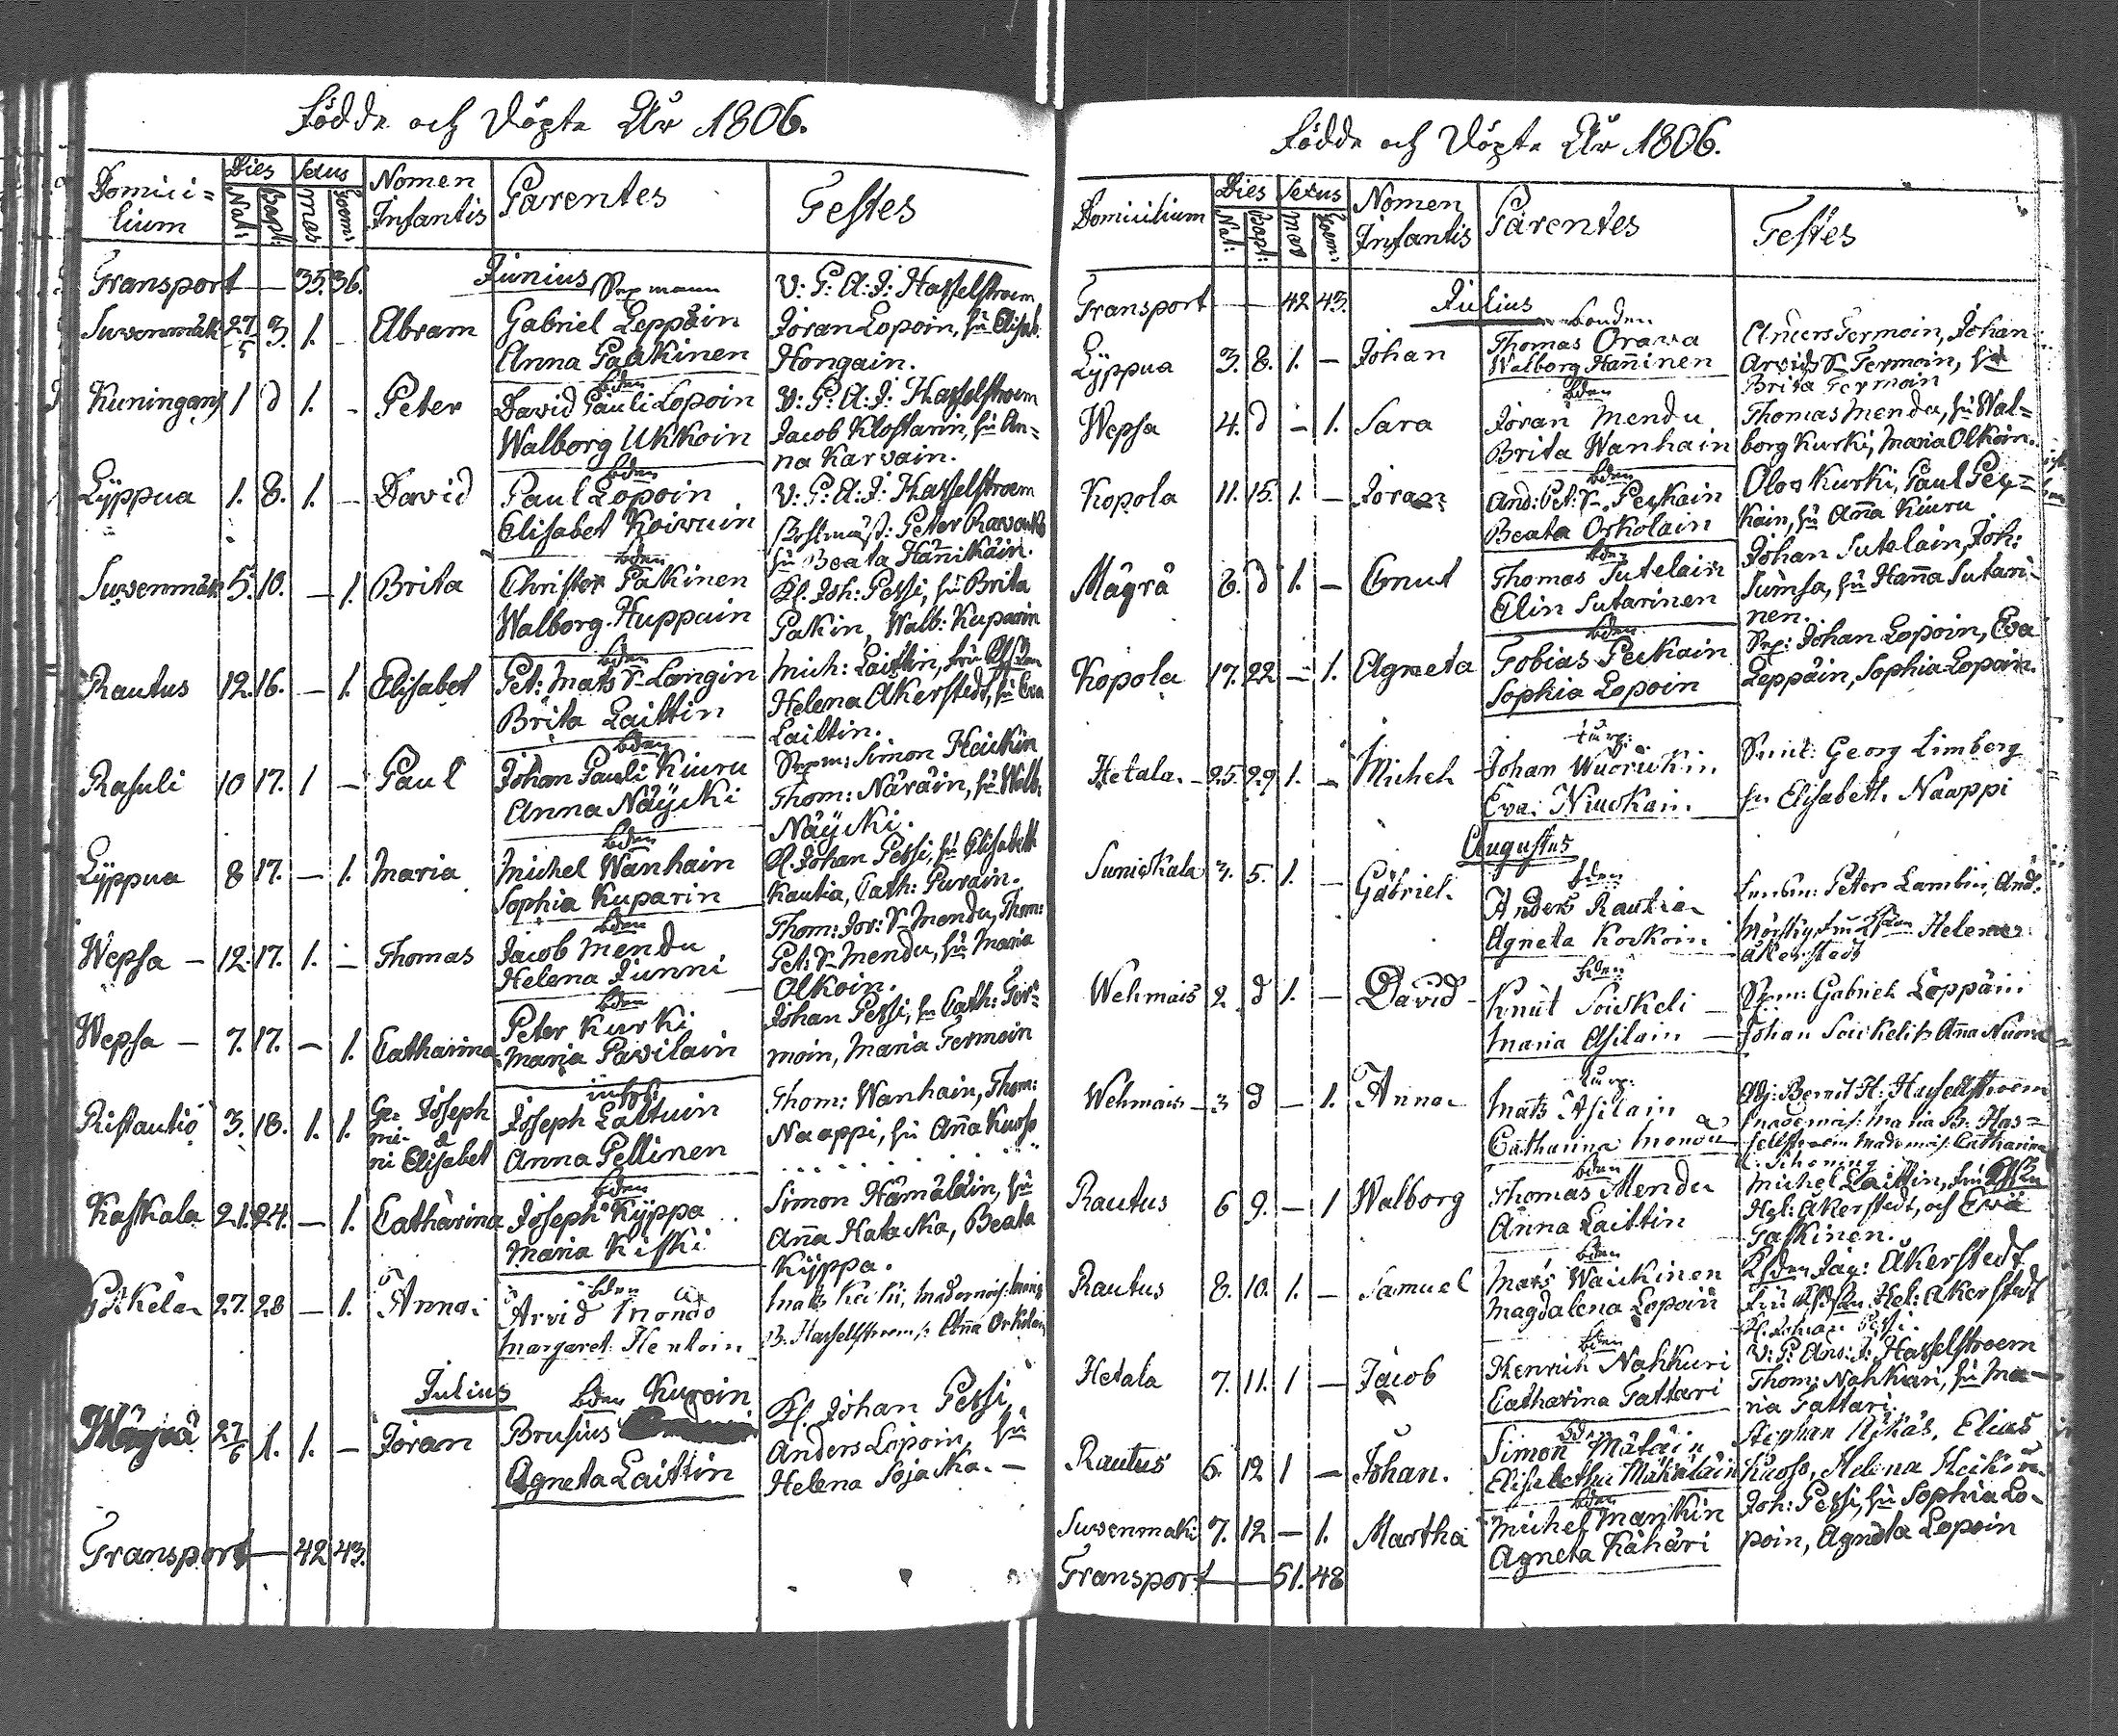 Födde och Döpte År 1806.
Domici=
lium
Dies
Nat:
Bapt:
Sexus
mas
Foem:
Nomen
Infantis
Parentes
Testes
Transport — 35. 36.
Junius
Sexmann
V: P: A: J: Hasselstroem
Suvenmäk 27/5 3. 1. - Abram
Gabriel Leppäin
Anna Paakinen
Jöran Lopoin, hu Elisab:
Hongain.
Kuningans 1 d 1. - Peter
bden
David Pauli Lopoin
Walborg Ukkoin
V: P: A: J: Hasselstroem
Jacob Klostarin, hu An=
na Karvain.
Lyppua 1. 8. 1. - David
bden
Paul Lopoin
Elisabet Koivuin
V: P: A: J: Hasselstroem
Peter
hu Beata Hännikäin.
Suvenmäk 5. 10. - 1. Brita
bden
Christer Pakinen
Walborg Huppuin
Kl. Joh: Pessi, hu Brita
Pakin, Walb: Kuparin
Rautus 12. 16. - 1. Elisabet
bden
Pet: Mats S. Langin
Brita Laittin
Mich: Laittin, fru
Helena Akerstedt, hu Eva
Laittin.
Rasuli 10 17. 1 - Paul
bden
Johan Pauli Kiuru
Anna Näycki
Sexm: Simon Heickin
Thom: Näräin, hu Walb:
Näycki.
Lyppua 8 17. - 1. Maria
bden
Michel Wanhain
Sophia Kuparin
Kl. Johan Pessi, hu Elisabeth
Rautia, Cath: Purain.
Wepsa - 12. 17. 1. - Thomas
bden
Jacob Mendu
Helena Junni
Thom: Jör: S. Mendu, Thom:
Pet: S. Mendu, hu Maria
Olkoin.
Wepsa - 7. 17. - 1. Catharina
bden
Peter Kurki
Maria Pavilain
Johan Pessi, hu Cath: Ter=
moin, Maria Termoin
Ristautio 3. 18. 1. 1. Ge- Joseph
mi- &
ni Elisabet
inhys:
Joseph Laltuin
Anna Pellinen
Thom: Wanhain, Thom:
Naappi, hu Anna Kuoso
Kaskala 21. 24. - 1. Catharina
bden
Joseph Kyppa
Maria Kiski
Simon Hämäläin, hu
Anna Katacka, Beata
Kyppa.
27. 28 - 1. Anna
bden
Arvid Mondo
Margaret Hentoin
B. Hasselstroem
Julius
Mägrä 27/6 1. 1. - Jöran
bden Kuroin
Brusius
Agneta Laittin
Kl. Johan Pessi
Anders Lopoin, hu
Helena Sojacka. -
Transport — 42 43.
Födde och Döpte År 1806.
Domicilium
Dies
Nat:
Bapt:
Sexus
Mas
Foem:
Nomen
Infantis
Parentes
Testes
Transport — 42 43.
Julius
Lyppua 3. 8. 1. - Johan
bonden
Thomas Orava
Walborg Hanninen
Anders Termoin, Johan
Arvids S. Termoin, hu
Brita Termoin
Wepsa 4. d - 1. Sara
bden
Jöran Mendu
Brita Wanhain
Thomas Mendu, hu Wal=
borg Kurki, Maria Olkoin.
Kopola 11. 15. 1. - Jöran
bden
And: Pet: S. Peckain
Beata Orkolain
Olov Kurki, Paul Pec=
kain, hu Anna Kiuru
Mägrä 6. d 1. - Cnut
bden
Thomas Sutelain
Elin Sutarinen
Johan Sutelain, Joh:
Sumsa, hu Hanna Sutari-
nen.
Kopola 17. 22 - 1. Agneta
bden
Tobias Peckain
Sophia Lopoin
Sex: Johan Lopoin, Eva
Leppäin, Sophia Lopoin.
Hetala. - 25. 29 1. - Michel
torp:
Johan Wuorickin
Eva Niuckain
Georg Limberg
hu Elisabeth Naappi
Augustus
Sunickala 3. 5. 1. - Gabriel.
bden
Anders Rautia
Agneta Korkoin
Peter Lambin, And:
Helena
Akerstedt
Wehmais 2 d 1. - David
bden
Knut Soickeli
Maria Asilain
Sexm: Gabriel Leppäin
Johan Soickeli, Anna
Wehmais - 3 d - 1. Anna
torp:
Mats Asilain
Catharina Mondo
Adj: Bernt H: Hasselstroem
Mademois: Maria B: Has=
selstroem Mademois: Catharina
Rautus 6 9. - 1 Walborg
bden
Thomas Mendu
Anna Laittin
Michel Laittin, fru
Hel: Akerstedt, och Eva
Paskinen.
Rautus 8. 10. 1. - Samuel
bden
Mats Waickinen
Magdalena Lopoin
Akerstedt
fru Hel: Akerstedt
Kl. Johan Pessi.
Hetala 7. 11. 1 - Jacob
bden
Henrich Nahkuri
Catharina Tattari
V: P: And: J: Hasselstroem
Thom: Nahkuri, hu Ma-
ria Tattari
Rautus 6. 12 1 - Johan.
bden
Simon Mäläin
Elisabetha Mäkeläin
Stephan Ukkas, Elias
Kuoso, Helena Heikin.
Suvenmaki 7. 12 - 1. Martha
bden
Michel Mankin
Agneta Kähäri
Joh: Pessi, hu Sophia Lo-
poin, Agneta Lopoin
Transport — 51. 48